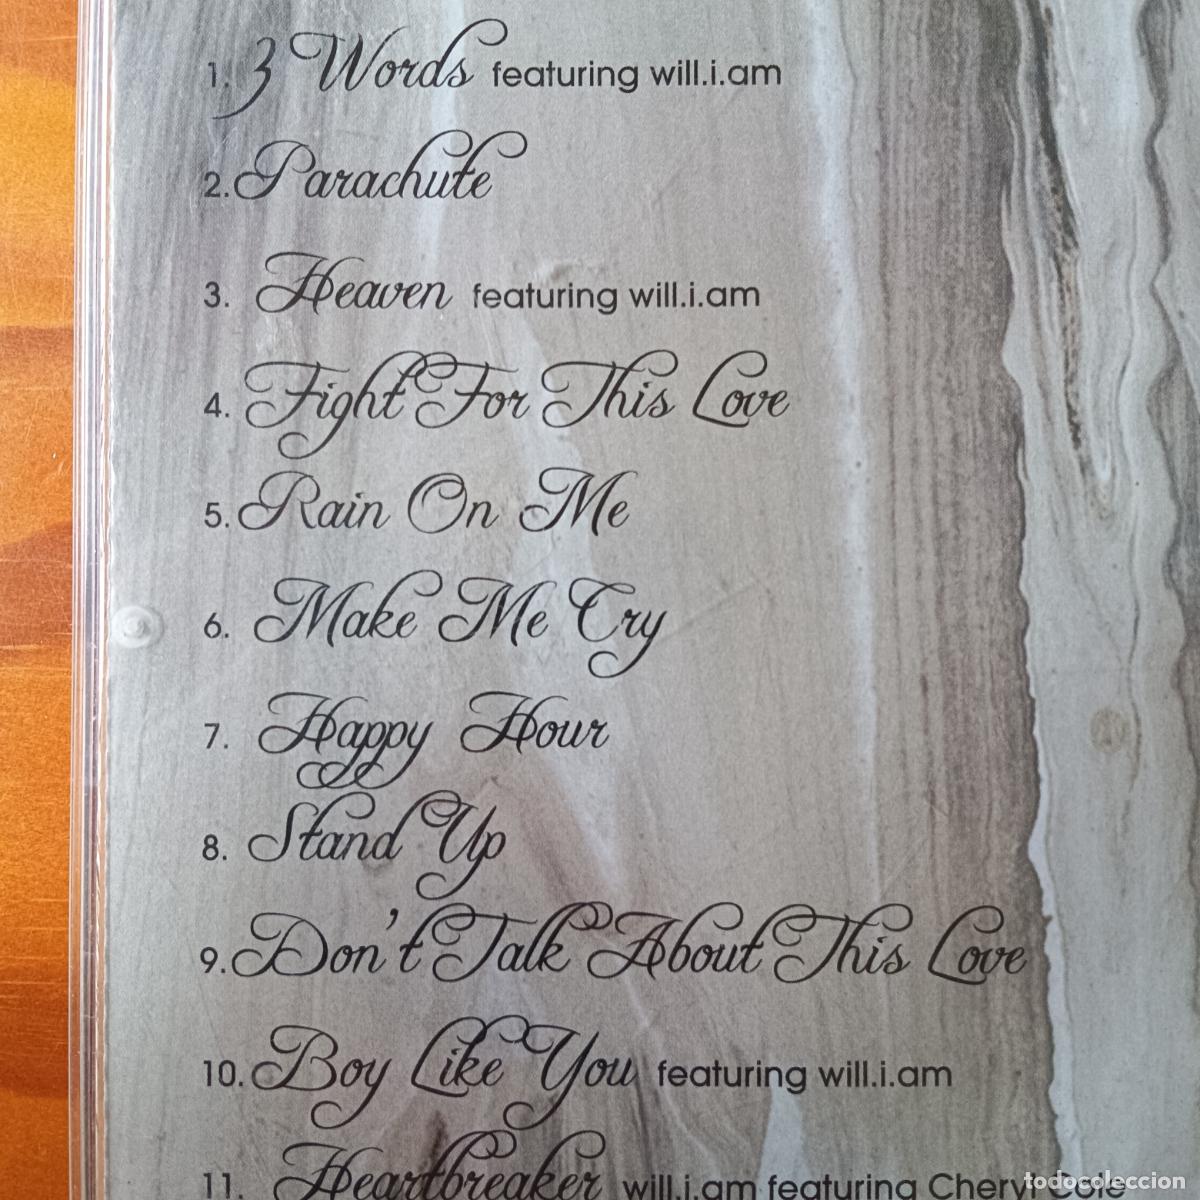 1. 3 Words featuring will.i.am
2. Parachute
3. Heaven featuring will.i.am
4. Fight For This Love
5. Rain On Me
6. Make Me Cry
7. Happy Hour
8. Stand Up
9. Don't Talk About This Love
10. Boy Like You featuring will.i.am
11. Heartbreaker will.i.am featuring Cheryl Cole
todocoleccion